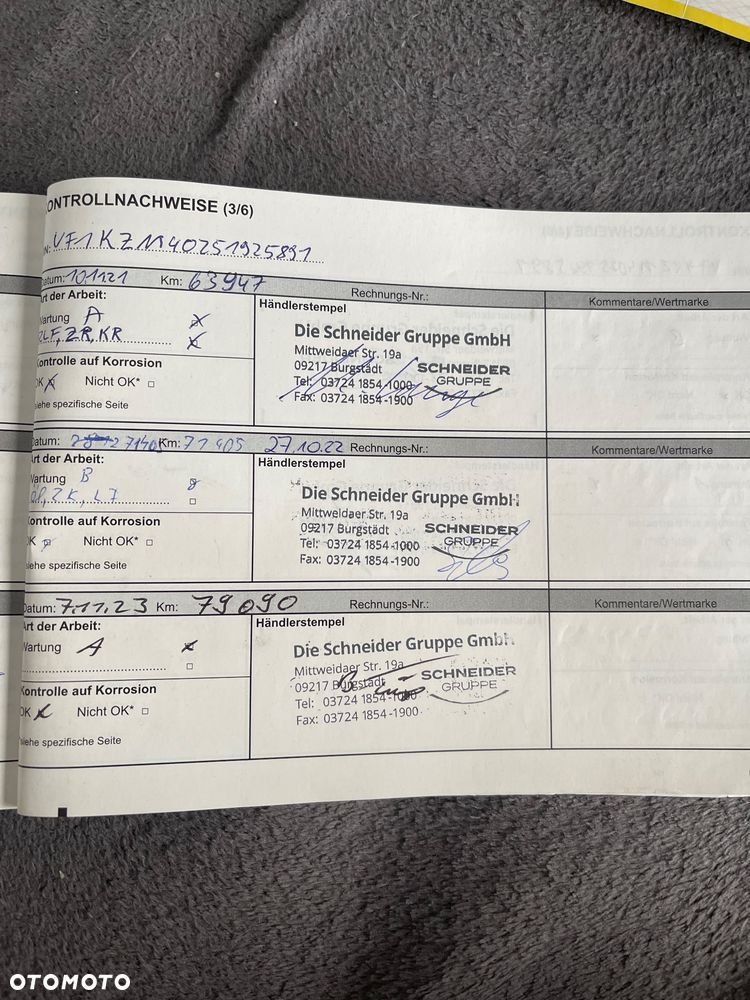 ONTROLLNACHWEISE (3/6)
N: VF1KZ1140251925891
atum: 10.1.21 Km: 63947 Rechnungs-Nr.:
Art der Arbeit: Händlerstempel Kommentare/Wertmarke
Wartung A
ZR, KR
Kontrolle auf Korrosion
OK Nicht OK*
siehe spezifische Seite
Die Schneider Gruppe GmbH
Mittweidaer Str. 19a
09217 Burgstädt
Tel: 03724 1854-1000
Fax: 03724 1854-1900
SCHNEIDER
GRUPPE
Datum: Km: 71405 27.10.22 Rechnungs-Nr.:
Art der Arbeit: Händlerstempel Kommentare/Wertmarke
Wartung B
Kontrolle auf Korrosion
OK Nicht OK*
siehe spezifische Seite
Die Schneider Gruppe GmbH
Mittweidaer Str. 19a
09217 Burgstädt
Tel: 03724 1854-1000
Fax: 03724 1854-1900
SCHNEIDER
GRUPPE
Datum: 7.11.23 Km: 79090 Rechnungs-Nr.:
Art der Arbeit: Händlerstempel Kommentare/Wertmarke
Wartung A
Kontrolle auf Korrosion
OK Nicht OK*
siehe spezifische Seite
Die Schneider Gruppe GmbH
Mittweidaer Str. 19a
09217 Burgstädt
Tel: 03724 1854-1000
Fax: 03724 1854-1900
SCHNEIDER
GRUPPE
OTOMOTO